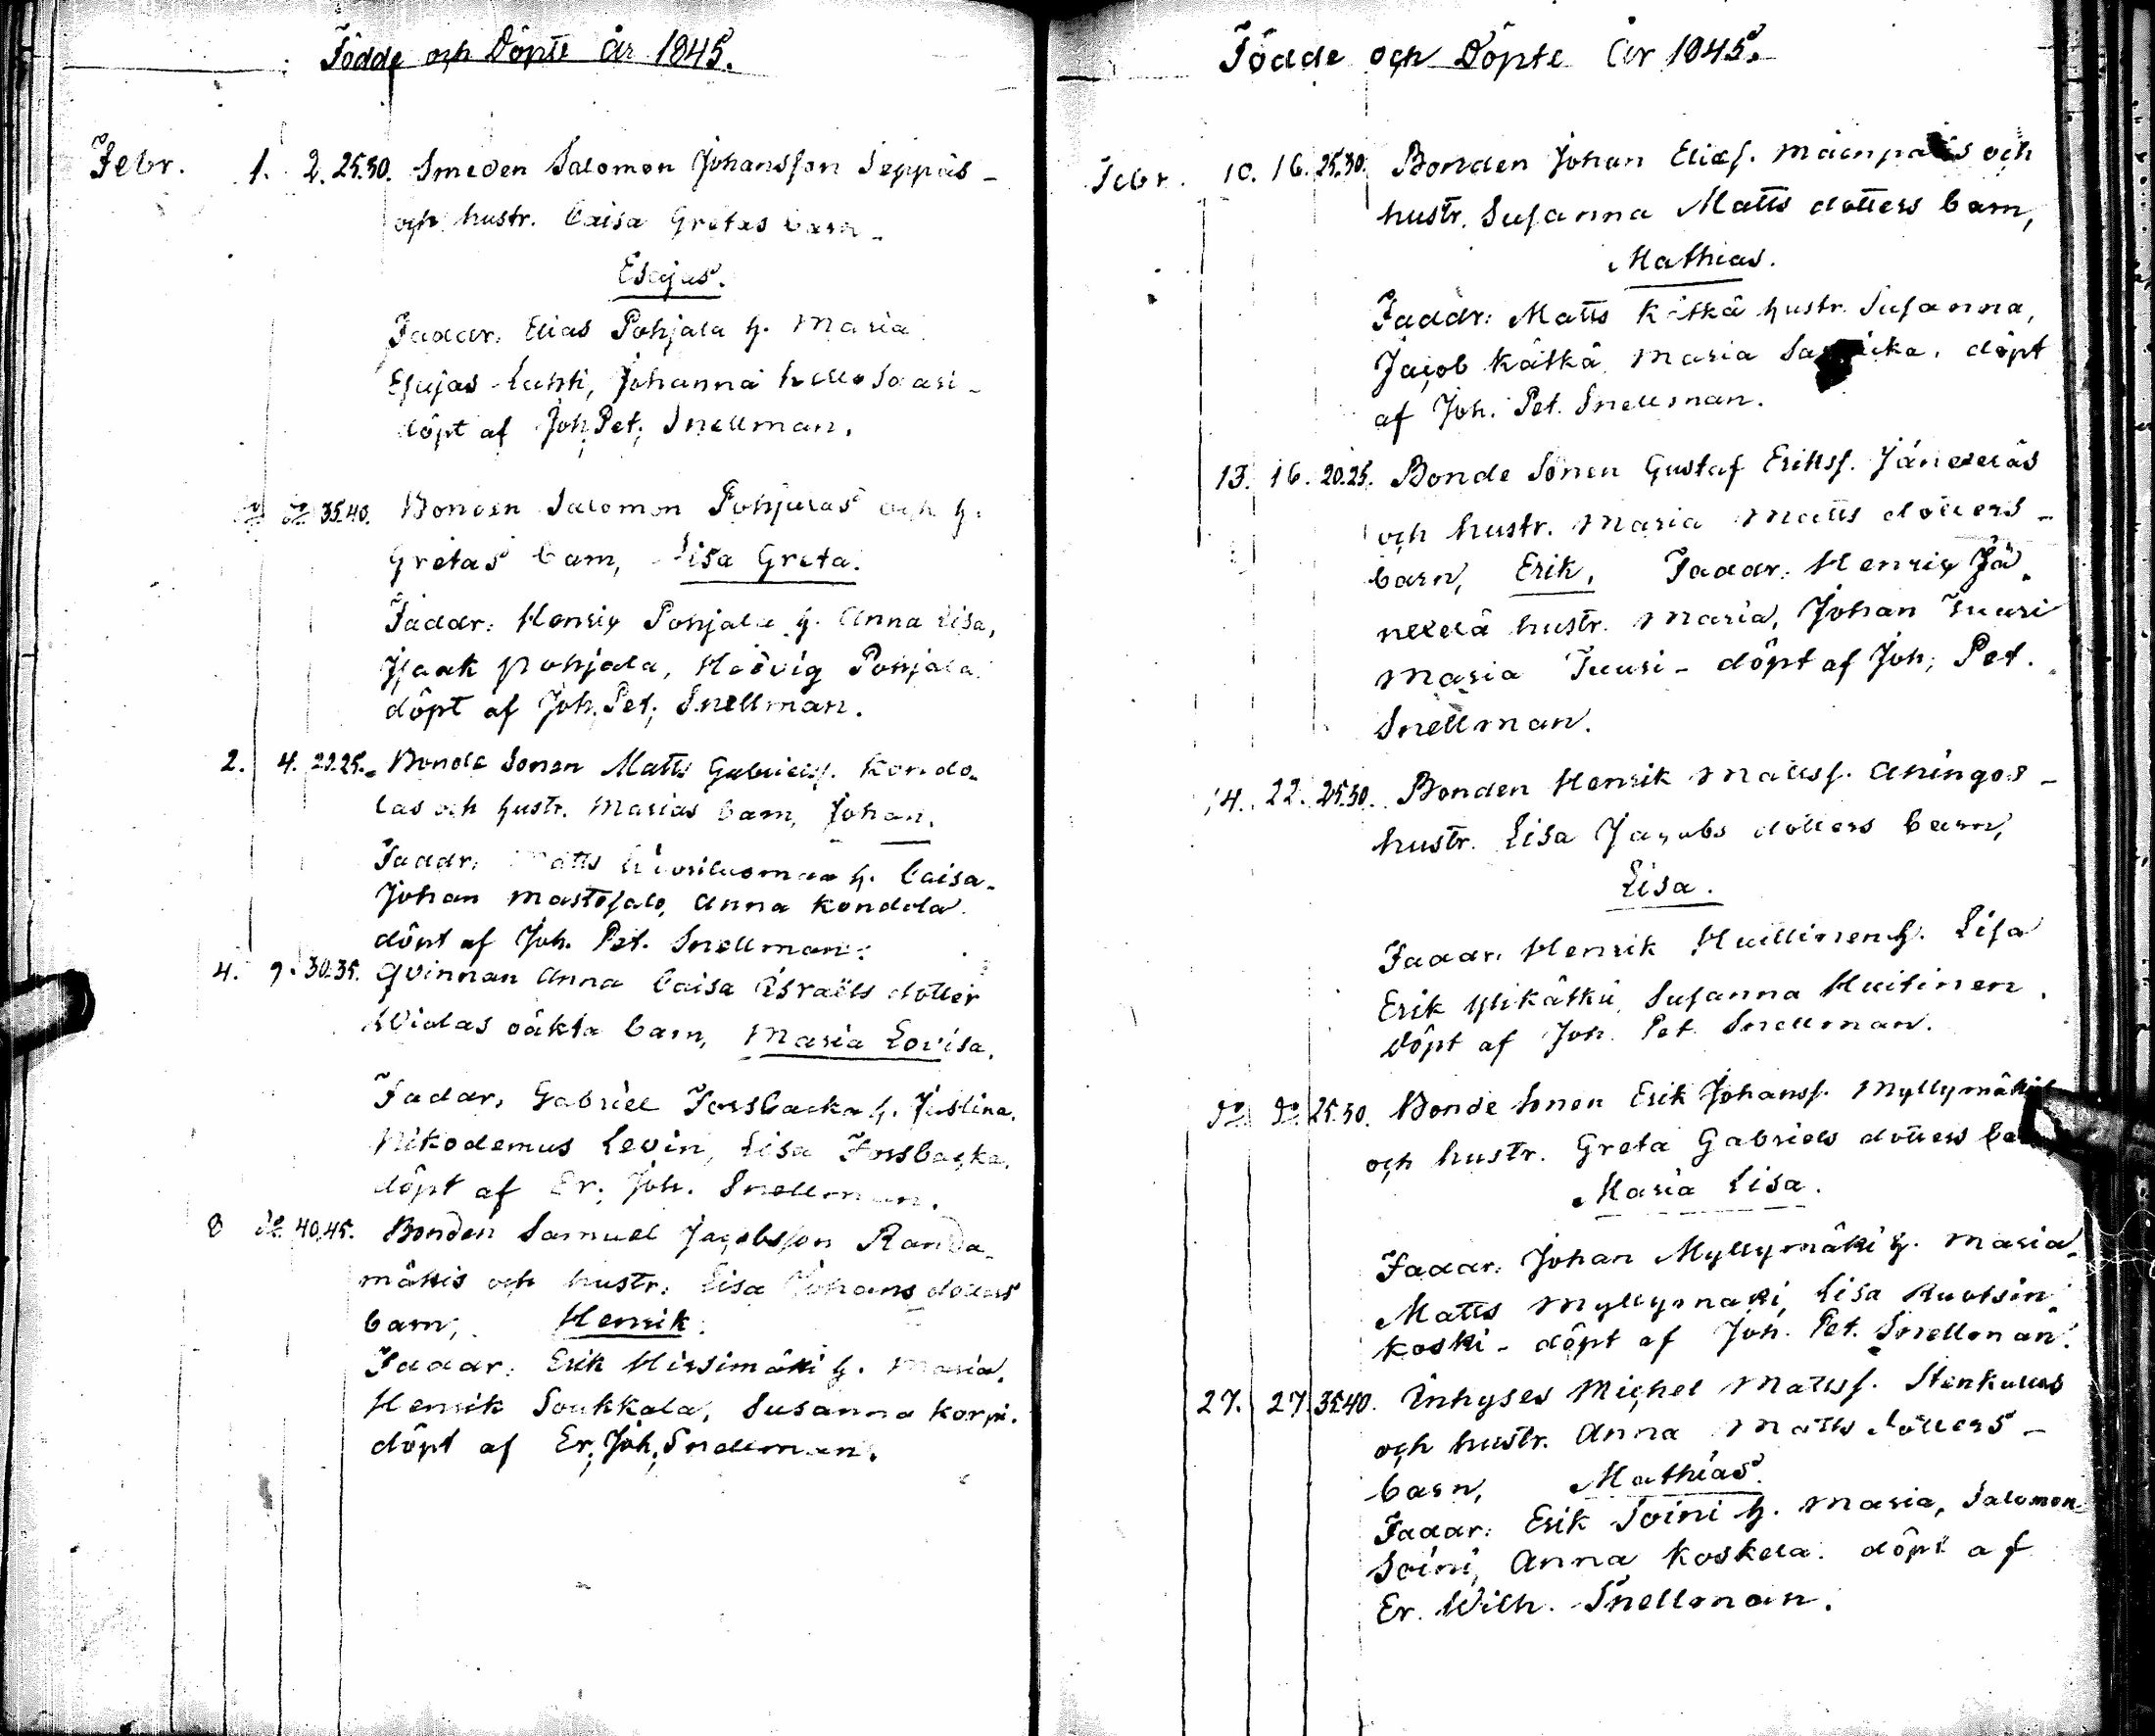 Födde och Döpte År 1845.
Febr. 1. 2. 25.30. Smeden Salomon Johansson Seppäs -
och hustr. Caisa Gretas barn -
Esajas.
Faddr. Elias Pohjala h. Maria
Esajas Luhti, Johanna
döpt af Joh; Pet; Snellman.
do do 35.40. Bonden Salomon Pohjalas och h.
Gretas barn, Lisa Greta.
Faddr: Henric Pohjala h. Anna Lisa,
Isaak Pohjala, Hedvig Pohjala
döpt af Joh. Pet; Snellman.
2. 4. 22.25. Bonde Sonen Matts Gabrielss. Kondo-
las och hustr. Marias barn, Johan.
Faddr: Matts h. Caisa.
Johan Mastosalo, Anna Kondola
döpt af Joh. Pet. Snellman.
4. 9. 30.35. Qvinnan Anna Caisa Israëls dotter
Widas oäkta barn, Maria Lovisa.
Fadar, Gabriel Forsbacka h. Justina.
Nikodemus Levin, Lisa Forsbacka.
döpt af Er; Joh. Snellman.
8 do 40.45. Bonden Samuel Jacobsson Randa-
mäkis och hustr. Lisa Johans dotters
barn, Henrik.
Faddr: Erik Hirsimäki h. Maria.
Henrik Soukkala, Susanna Korpi.
döpt af Er; Joh; Snellman.
Födde och Döpte År 1845.
Febr. 10. 16. 25.30. Bonden Johan Eliass. Mäenpääs och
hustr. Susanna Matts dotters barn,
Mathias.
Faddr: Matts Kätkä hustr. Susanna,
Jacob Kätkä, Maria döpt
af Joh. Pet. Snellman.
13. 16. 20.25. Bonde Sonen Gustaf Erikss. Jäneeläs
och hustr. Maria Matts dotters -
barn, Erik. Faddr: Henric Jä-
nelelä hustr. Maria, Johan Juusi
Maria Juusi - döpt af Joh; Pet.
Snellman.
14. 22. 25.30. Bonden Henrik Mattss. Ahingos -
hustr. Lisa Jacobs dotters barn,
Lisa.
Faddr: Henrik Huitinen h. Lisa
Erik Ylikätkä, Susanna Huitinen.
döpt af Joh. Pet. Snellman.
do do 25.30. Bonde Sonen Erik Johanss. Myllymäkis
och hustr. Greta Gabriels dotters
Maria Lisa.
Faddr: Johan Myllymäki h. Maria.
Matts Myllymäki, Lisa Ruotsin-
koski - döpt af Joh. Pet. Snellman.
27. 27 35.40. Inhyses Michel Mattss. Stenkulles
och hustr. Anna Matts dotters -
barn, Mathias.
Faddr: Erik Soini h. Maria, Salomon
Soini, Anna Koskela. döpt af
Er. Wilh. Snellman.